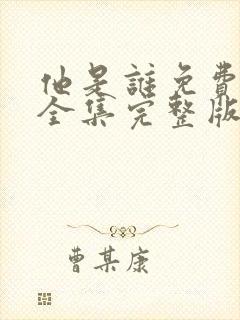 他是誰免費
全集完整版
曹某康